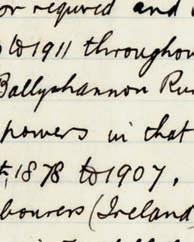 or required and
to 1911 throughou
Ballyshannon Rur
powers in that
1878 to 1907,
bourers (Ireland